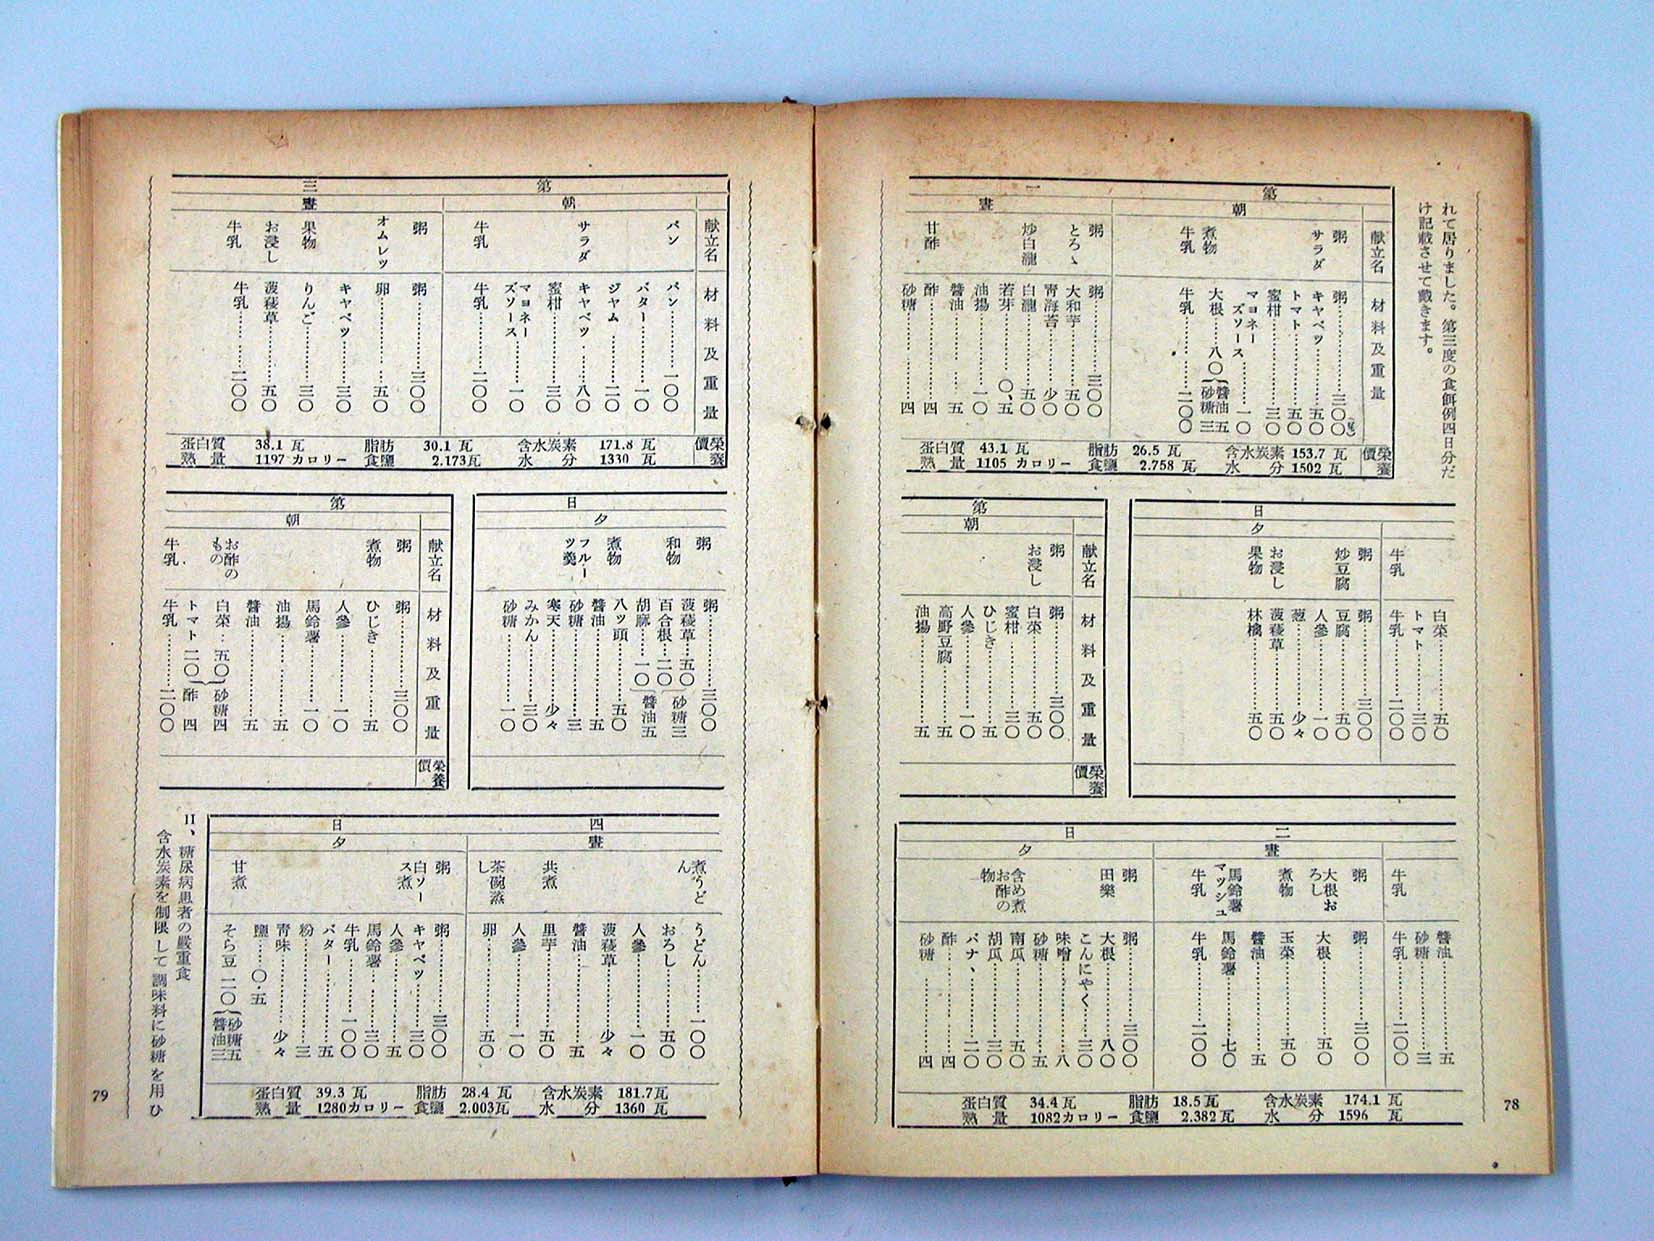 れて居りました。第三度の食餌例四日分だ
け記載させて戴きます。
第一
朝
晝
献立名
材料及重量
榮養價
粥
粥……三〇〇(瓦)
サラダ
キャベツ……五〇
トマト……五〇
蜜柑……三〇
マヨネーズソース……一〇
煮物
大根……八〇{醬油五 砂糖三
牛乳
牛乳……二〇〇
粥
粥……三〇〇
とろゝ
大和芋……五〇
靑海苔……少〇
炒白瀧
白瀧……五〇
若芽……〇、五
油揚……一〇
醬油……五
甘酢
酢……四
砂糖……四
蛋白質 43.1 瓦 脂肪 26.5 瓦 含水炭素 153.7 瓦
熱量 1105 カロリー 食鹽 2.758 瓦 水分 1502 瓦
日
夕
白菜……五〇
トマト……三〇
牛乳
牛乳……二〇〇
粥
粥……三〇〇
炒豆腐
豆腐……五〇
人參……一〇
葱……少々
お浸し
菠薐草……五〇
果物
林檎……五〇
第
朝
献立名
材料及重量
榮養價
粥
粥……三〇〇
お浸し
白菜……五〇
蜜柑……三〇
ひじき……五
人參……一〇
高野豆腐……五
油揚……五
二日
晝
夕
醬油……五
砂糖……三
牛乳
牛乳……二〇〇
粥
粥……三〇〇
大根おろし
大根……五〇
煮物
玉菜……五〇
醬油……五
馬鈴薯マッシュ
馬鈴薯……七〇
牛乳
牛乳……二〇〇
粥
粥……三〇〇
田樂
大根……八〇
こんにやく……三〇
味噌……八
砂糖……五
含め煮
南瓜……五〇
お酢の物
胡瓜……三〇
バナヽ……二〇
酢……四
砂糖……四
蛋白質 34.4 瓦 脂肪 18.5 瓦 含水炭素 174.1 瓦
熱量 1082カロリー 食鹽 2.382 瓦 水分 1596 瓦
78
第三
朝
晝
献立名
材料及重量
榮養價
パン
パン……一〇〇
バター……一〇
ジャム……二〇
サラダ
キャベツ……八〇
蜜柑……三〇
マヨネーズソース……一〇
牛乳
牛乳……二〇〇
粥
粥……三〇〇
オムレツ
卵……五〇
キャベツ……三〇
果物
りんご……三〇
お浸し
菠薐草……五〇
牛乳
牛乳……二〇〇
蛋白質 38.1 瓦 脂肪 30.1 瓦 含水炭素 171.8 瓦
熱量 1197 カロリー 食鹽 2.173瓦 水分 1330 瓦
日
夕
粥
粥……三〇〇
和物
菠薐草……五〇
百合根……二〇
胡麻……一〇
砂糖三
醬油五
煮物
八ツ頭……五〇
醬油……五
砂糖……三
フルーツ羹
寒天……少々
みかん……三〇
砂糖……一〇
第
朝
献立名
材料及重量
榮養價
粥
粥……三〇〇
煮物
ひじき……五
人參……一〇
馬鈴薯……一〇
油揚……五
醬油……五
お酢のもの
白菜……五〇
トマト 二〇
砂糖四
酢 四
牛乳
牛乳……二〇〇
四日
晝
夕
煮うどん
うどん……一〇〇
おろし……五〇
人參……一〇
菠薐草……少々
醬油……五
共煮
里芋……五〇
人參……一〇
茶碗蒸し
卵……五〇
粥
粥……三〇〇
白ソース煮
キャベツ……三〇
人參……五
馬鈴薯……三〇
牛乳……一〇〇
バター……五
粉……三
靑味……少々
鹽……〇・五
甘煮
そら豆 二〇{砂糖五 醬油三
蛋白質 39.3 瓦 脂肪 28.4 瓦 含水炭素 181.7瓦
熱量 1280カロリー 食鹽 2.003瓦 水分 1360 瓦
II、糖尿病患者の嚴重食
含水炭素を制限して調味料に砂糖を用ひ
79